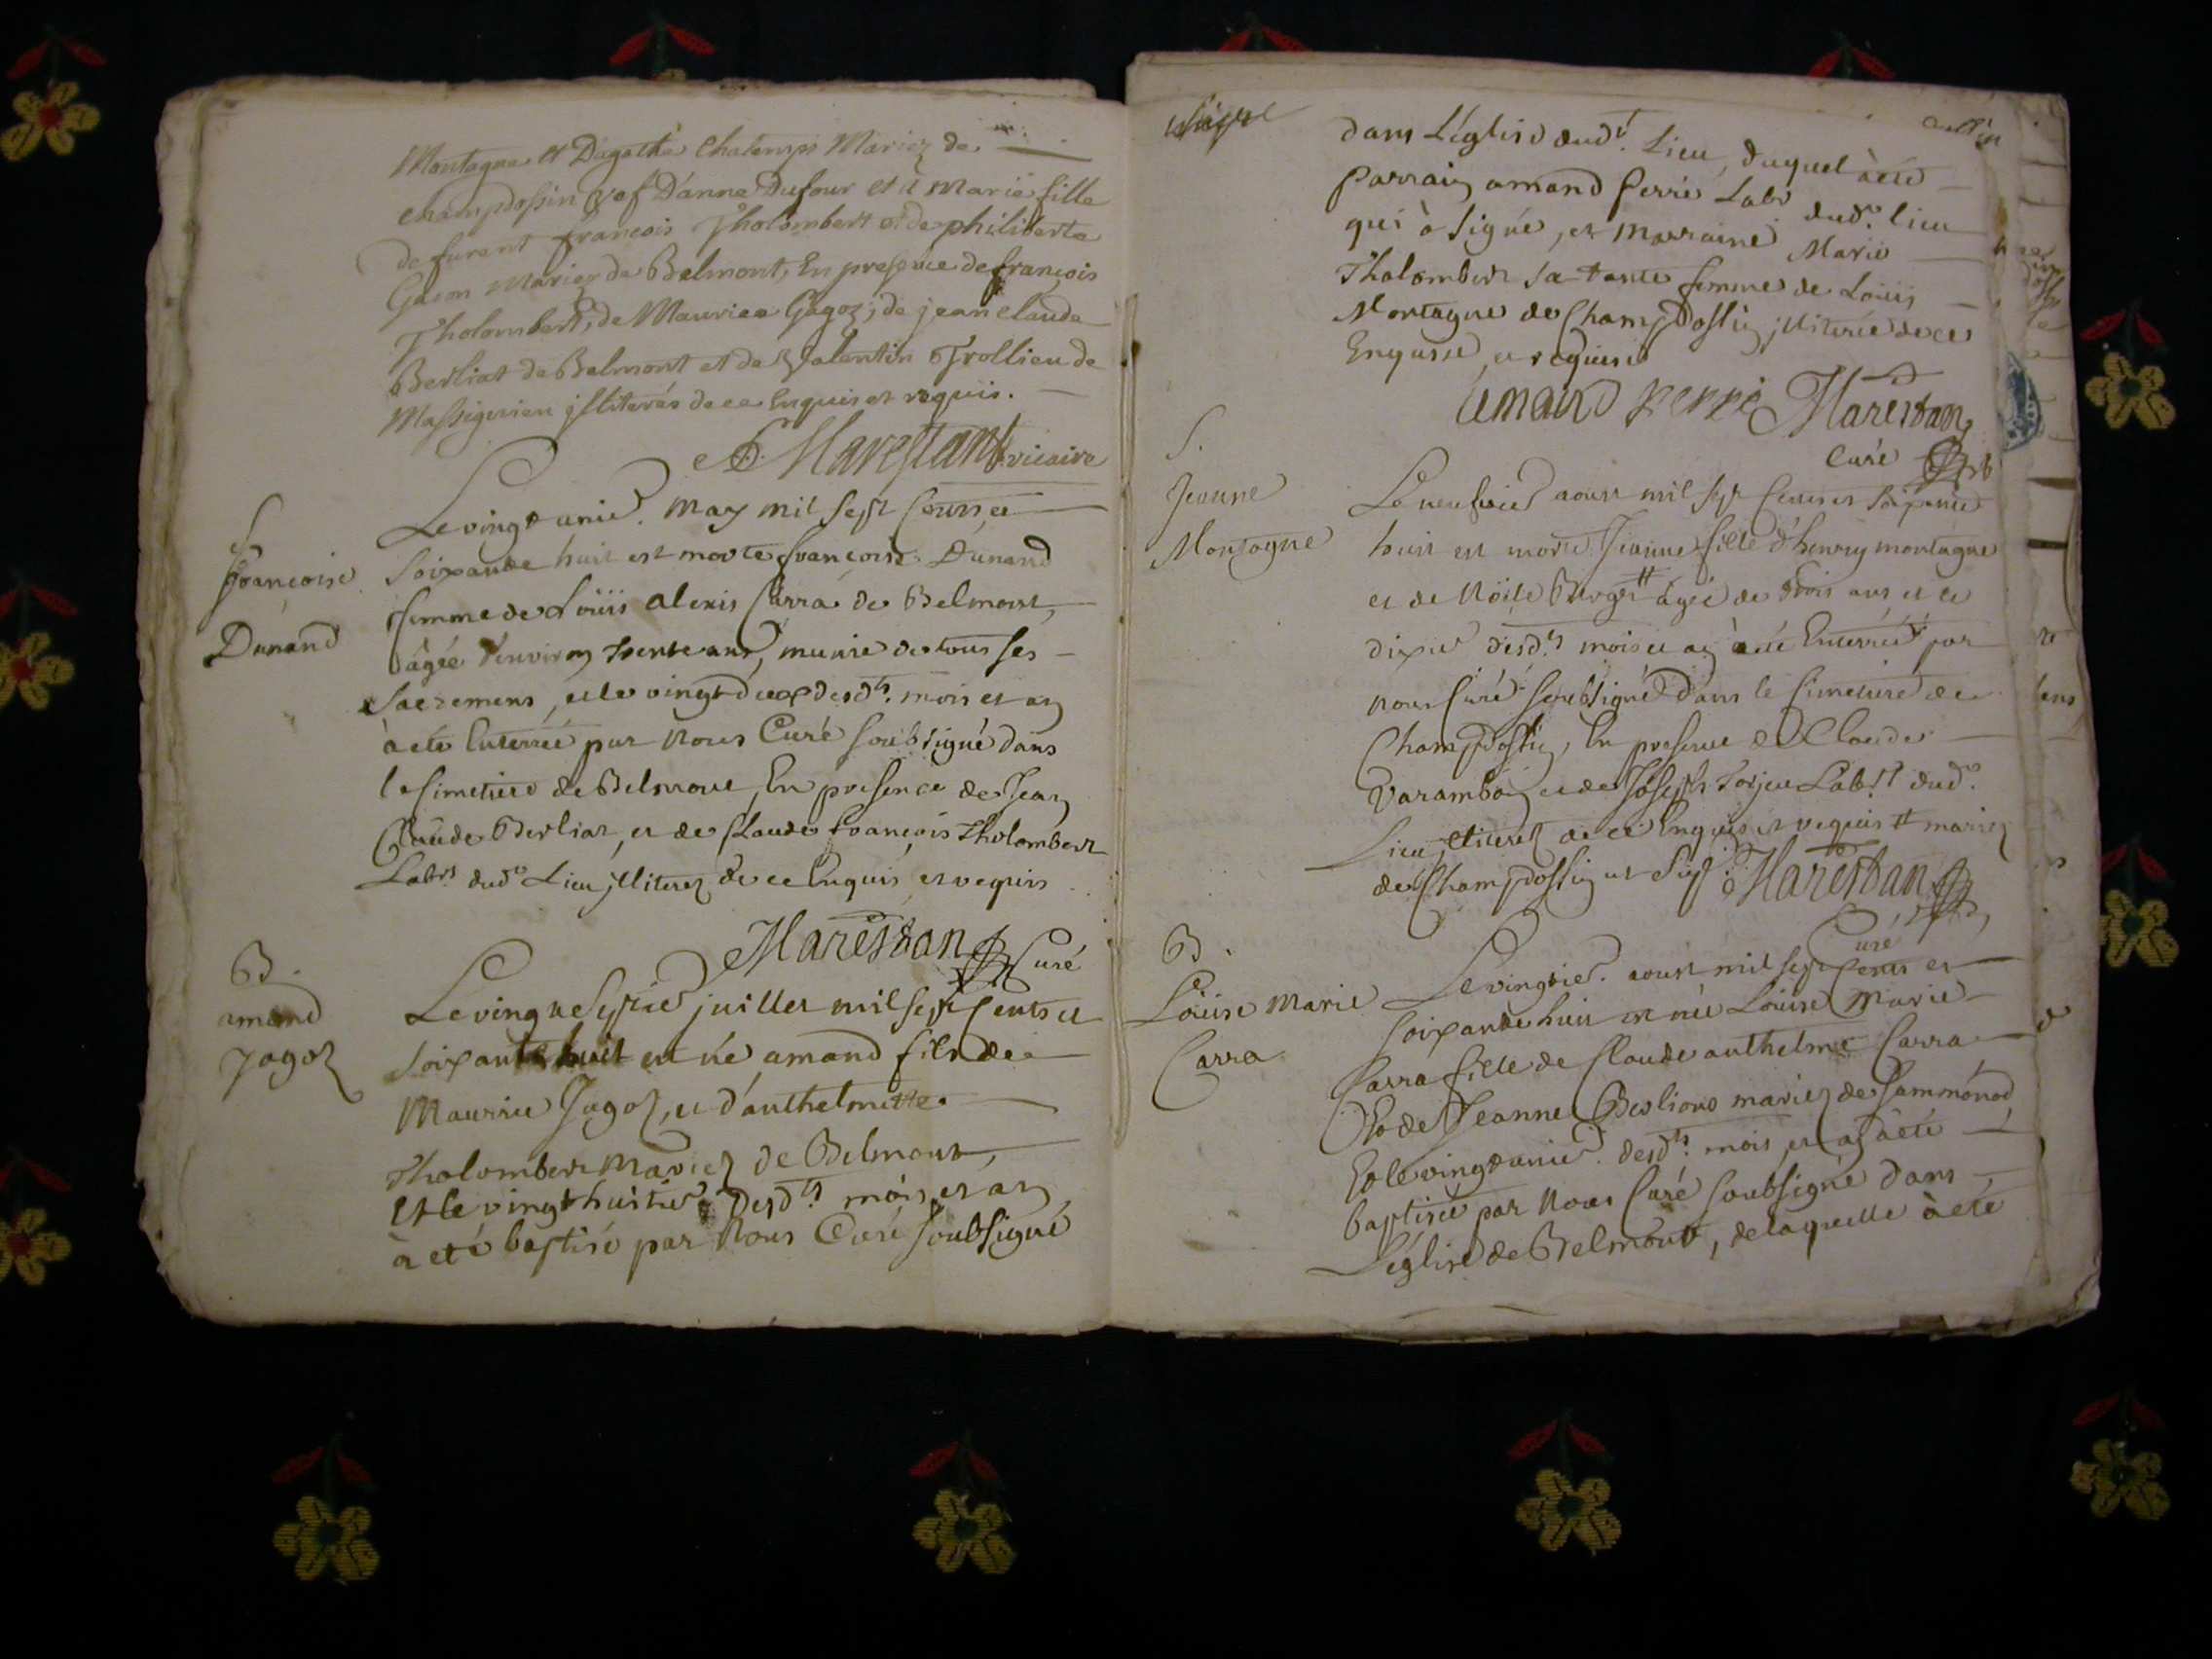 Montagne et Dagathe Chatemps Mariez de
champdossin vef D'anne Dufour et à Marie fille
de furent françois Tholombert et de philiberte
Mariez de Belmont, En presence de françois
Tholombert, de Maurice Gagoz, de jean claude
Berliat de Belmont et de Valentin Trollieu de
Massignieu illiterés de ce Enquis et requis.
Marestant vicaire
S
françoise
Dunand
Le vingt unie. May mil sept Cents et
soixante huit est morte françoise Dunand
femme de Loüis alexis Carra de Belmont,
âgée d'environ trente ans, munie de tous ses
Sacremens, et le vingt deux desdts. mois et an
à eté Enterrée par Nous Curé soubsigné dans
le Cimetiere de Belmont, En presence de Jean
Claude Berliat, et de Claude françois Tholombert
Labrs dudt Lieu illiterez de ce Enquis et requis
Marestan Curé
B.
amand
Jagoz
Le vingt septie juillet mil sept Cents et
soixante huit est né amand fils de
Maurice Jagoz, et d'anthelmette
Tholombert Mariez de Belmont,
Et le vingt huitie desdts. mois et an
à eté baptisé par Nous Curé soubsigné
dans L'églisse dudt. Lieu, duquel à eté
Parrain amand Perré Labr dudt. lieu
qui à signé, et Marraine Marie
Tholombert sa tante femme de Loüis
Montagne de Champdossin illiterée de ce
Enquise, et requise
amand perré Marestan
Curé
S.
Jeanne
Montagne
Le neufvie aoust mil sept Cents et soixante
huit est morte Jeanne fille d'henry montagne
et de Noële # âgée de trois ans et le
dixie desdts mois et an à eté Enterrée par
nous Curé soubsigné dans le Cimetiere de
Champdossin, En presence de Claude
Varambon et de Joseph Labrs dudt
Lieu, illiterez de ce Enquis et requis # mariez
de Champdossin Marestan
Curé
B.
Loüise Marie
Carra
Le vingtie. aoust mil sept Cents et
soixante huit est née Loüise Marie
Carra fille de Claude anthelme Carra
Et de Jeanne Berliond mariez de Sammonod
Et le vingt unie. desdts. mois et an à eté
baptisée par Nous Curé soubsigné dans
L'église de Belmont, de laquelle à eté